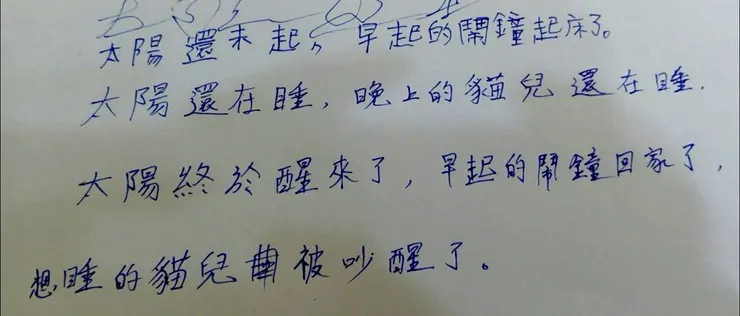 太陽還未起,早起的鬧鐘起床了。
太陽還在睡,晚上的貓兒還在睡.
太陽終於醒來了,早起的鬧鐘回家了,
想睡的貓兒被吵醒了。